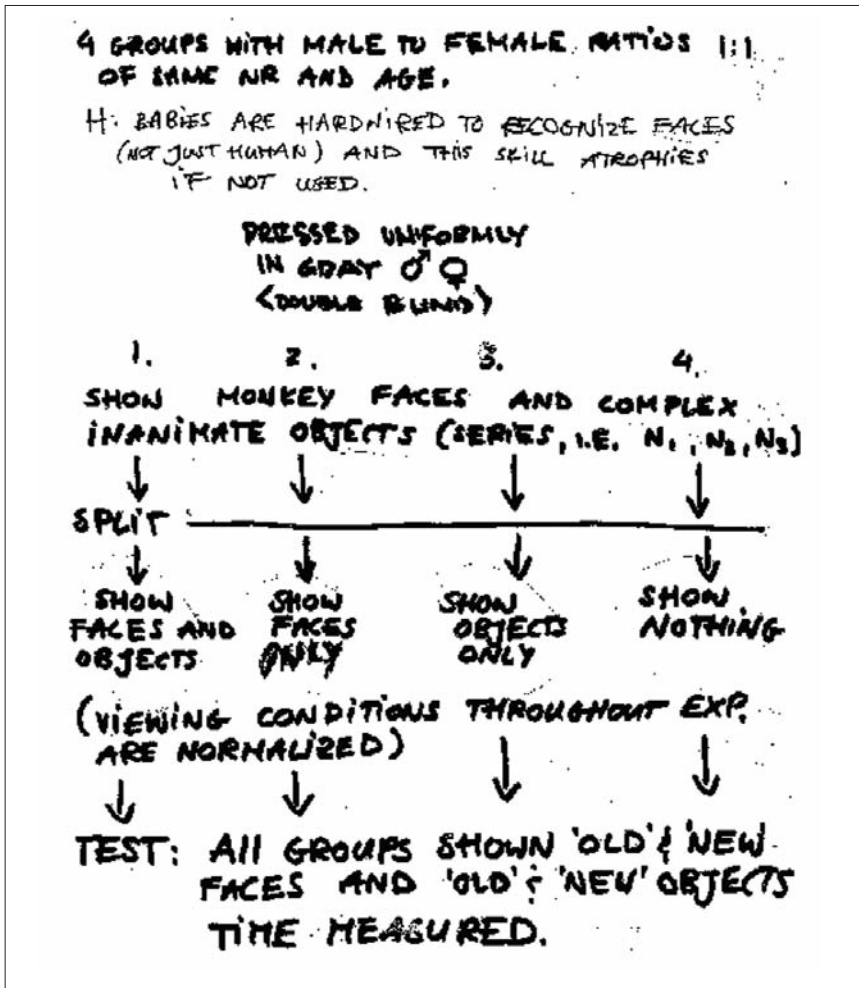 4 GROUPS WITH MALE TO FEMALE RATIOS 1:1
OF SAME NR AND AGE.
H: BABIES ARE HARDWIRED TO RECOGNIZE FACES
(NOT JUST HUMAN) AND THIS SKILL ATROPHIES
IF NOT USED.
DRESSED UNIFORMLY
IN GRAY ♂ ♀
(DOUBLE BLIND)
1. 2. 3. 4.
SHOW MONKEY FACES AND COMPLEX
INANIMATE OBJECTS (SERIES, I.E. N1, N2, N3)
SPLIT
SHOW FACES AND OBJECTS
SHOW FACES ONLY
SHOW OBJECTS ONLY
SHOW NOTHING
(VIEWING CONDITIONS THROUGHOUT EXP.
ARE NORMALIZED)
TEST: All GROUPS SHOWN 'OLD' & 'NEW'
FACES AND 'OLD' & 'NEW' OBJECTS
TIME MEASURED.